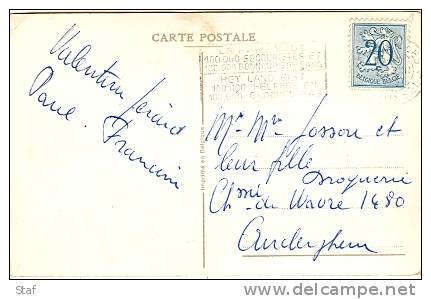 CARTE POSTALE
100.000 SECOURISTES ET
HET LAND
100.000 HELPERS EN
20
BELGIQUE-BELGIE
Valentin Gérard
Paul. Francine
Imprimé en Belgique
Mr Mme Josson et
leur fille
Droguerie
Chssée de Wavre 1480
Auderghem
Staf
http://www.delcampe.net